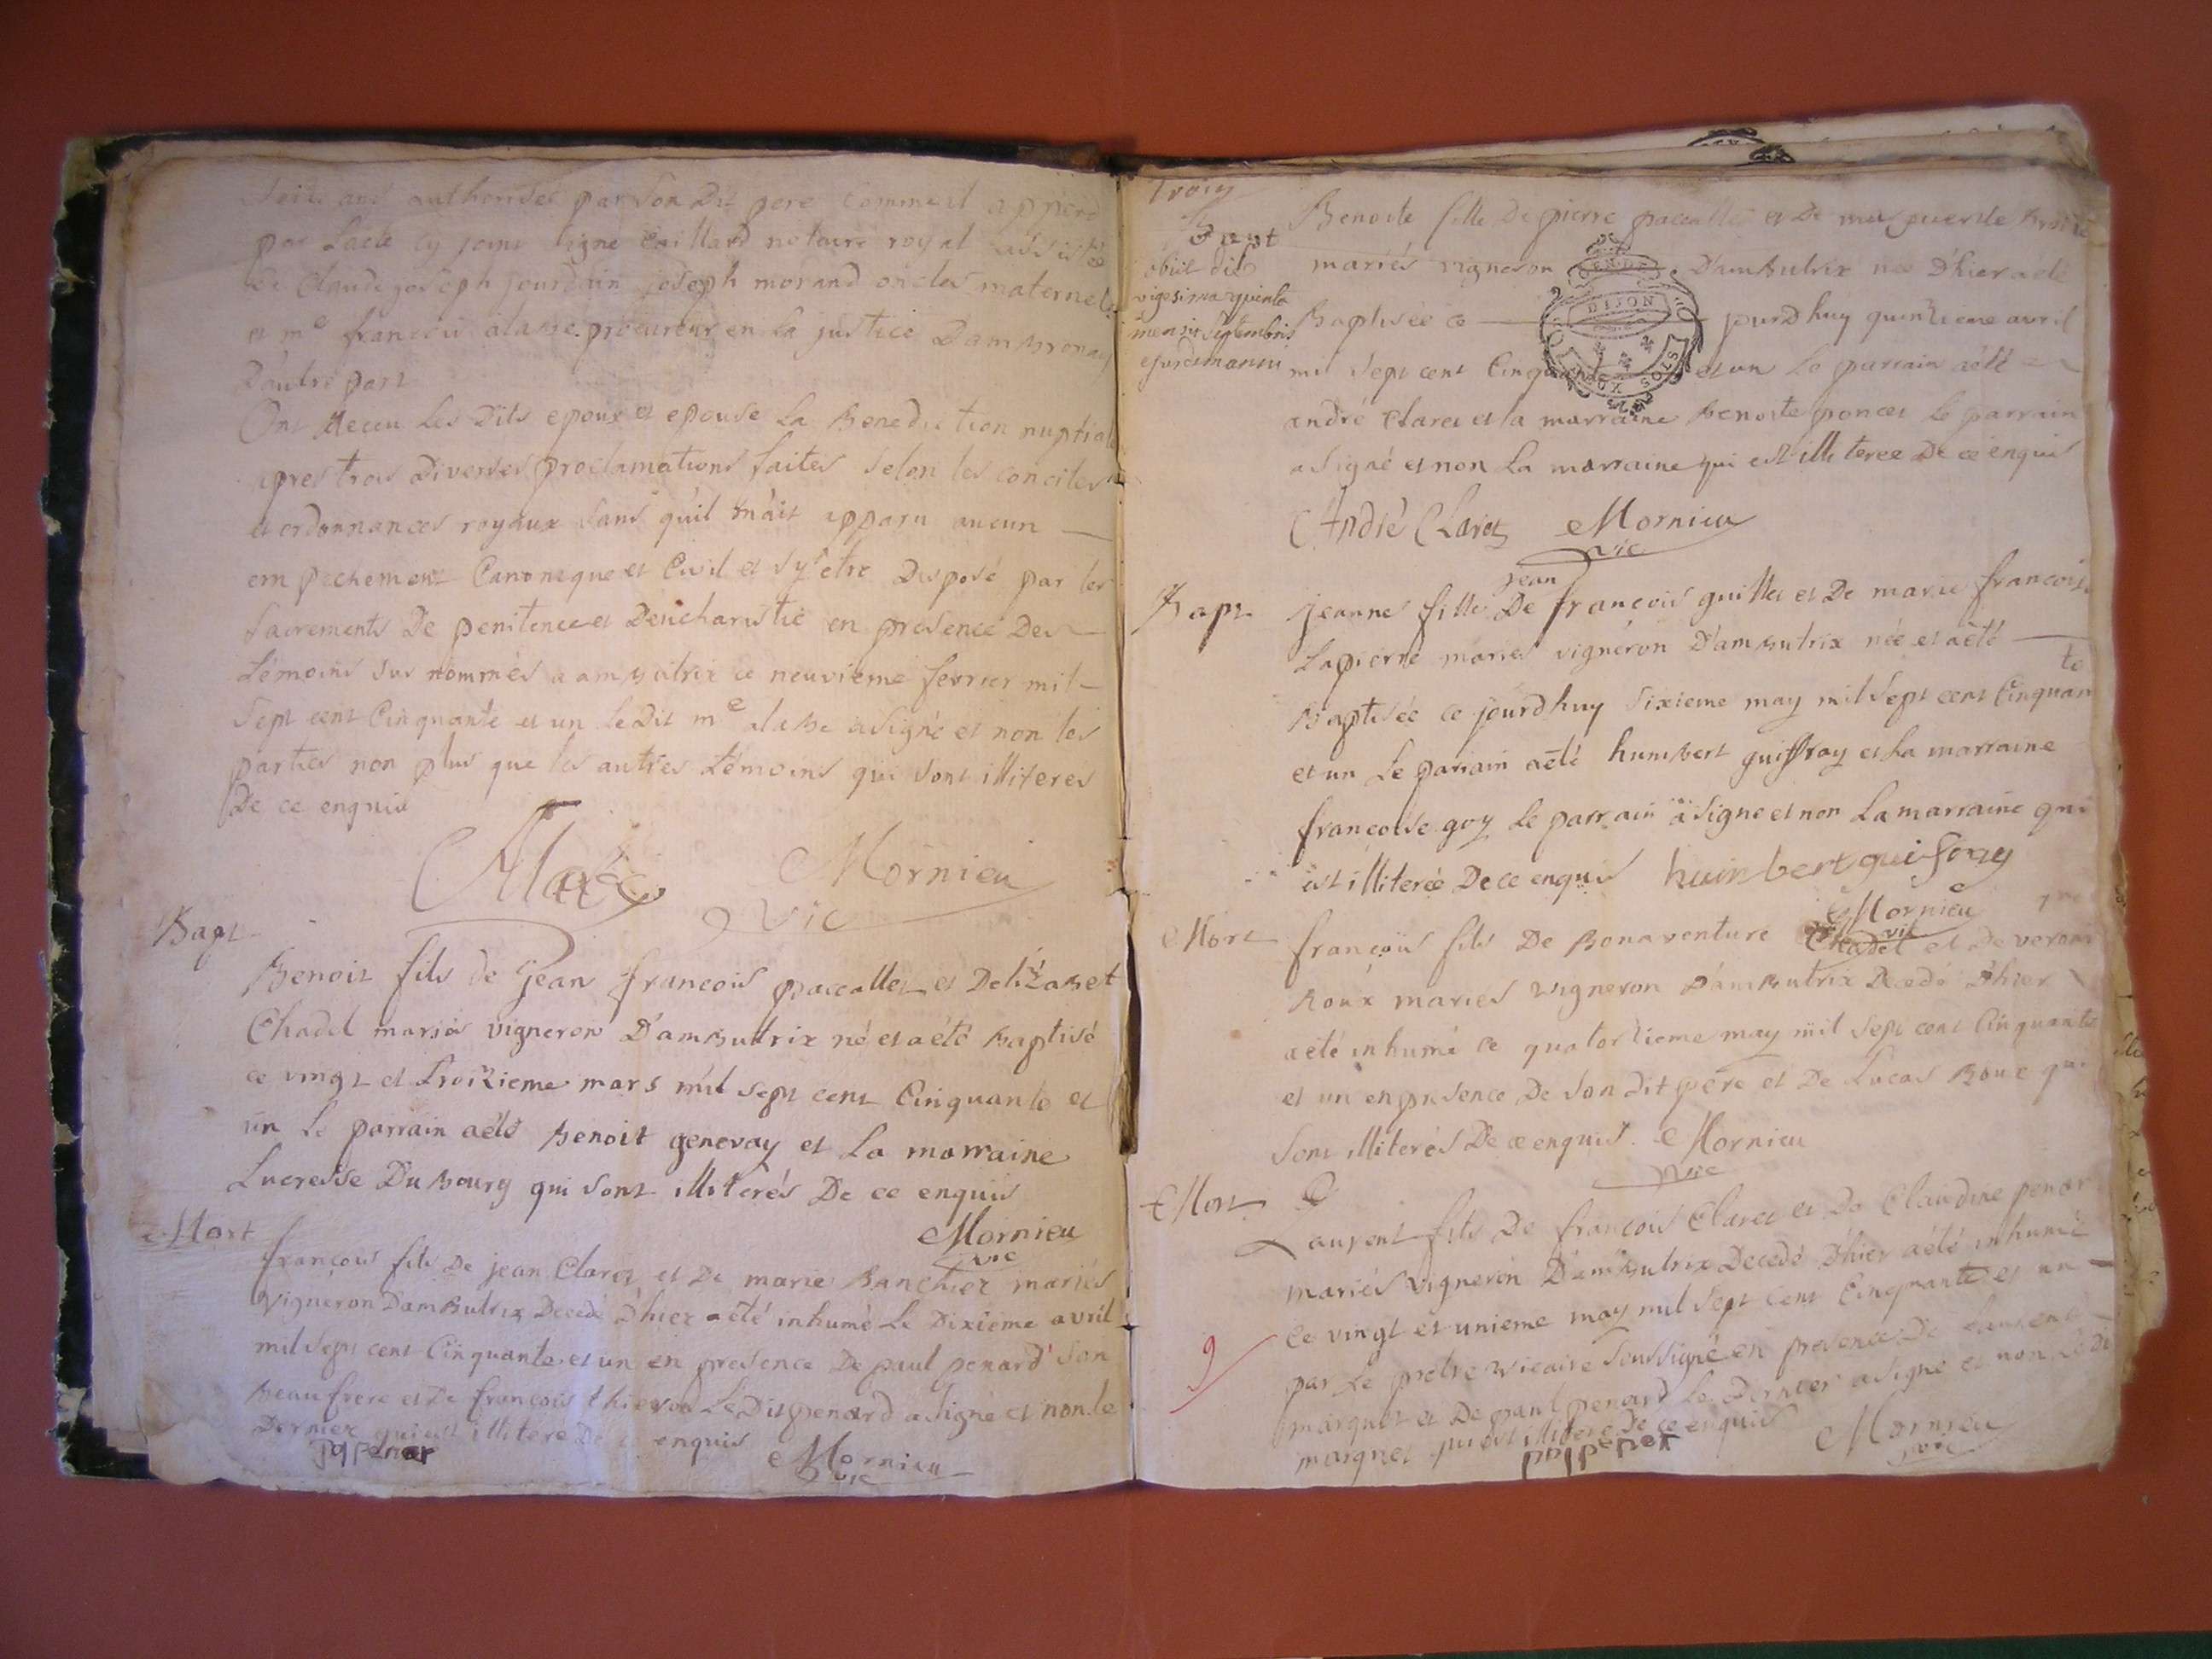 Seize ans authorisée par son Dit pere comme il appert
par l'acte cy joint signé Caillard notaire royal assistée
de Claude joseph jourdain joseph morand oncles maternels
et me francois alabe procureur en la justice D'ambronay
D'autre part
Ont Receu les Dits epoux et epouse la Benediction nuptiale
apres trois Diverses proclamations faites selon les conciles
et ordonnances royaux sans qu'il m'ait apparu aucun
empechement Canonique et Civil et s'y etre Disposé par les
sacrements De penitence et D'eucharistie en presence Des
témoins sus nommés a ambutrix ce neuvieme fevrier mil
sept cent Cinquante et un le Dit me alabe a signé et non les
parties non plus que les autres témoins qui sont illiteres
De ce enquis
Alabe Mornieu
vic
Bapt
Benoit fils de jean francois paccallet et D'elizabet
Chadel mariés vigneron D'ambutrix né et a été baptisé
ce vingt et troizieme mars mil sept cent Cinquante et
un le parrain a été Benoit genevay et la marraine
Lucresse Dubourg qui sont illiterés De ce enquis
Mornieu
vic
Mort
françois fils De jean Claret et De marie Banchet mariés
vigneron D'ambutrix Decedé D'hier a été inhumé Le Dixieme avril
mil sept cent Cinquante et un en presence De paul penard son
beaufrere et De françois thievon Le Dit penard a signé et non le
Dernier qui est illitere De ce enquis
pp penar Mornieu
vic
Bapt
obiit die
vigesima quinta
mensis septembris
Benoite fille De pierre paccallet et De marguerite
mariés vigneron D'ambutrix née D'hier a été
Baptisée ce jourd'huy quinzieme avril
DIJON
mil sept cent Cinquante et un Le parrain a été
andré Claret et la marraine benoite poncet Le parrain
a signé et non La marraine qui est illiteree De ce enquis
André Claret Mornieu
vic
Bapt
jean
jeanne fille De françois guillet et De marie francoise
Lapierre mariés vigneron D'ambutrix née et a été
te
Baptisée ce jourd'huy sixieme may mil sept cent Cinquan
et un Le parrain a été humbert guiffray et La marraine
francoise goy Le parrain a signe et non La marraine qui
est illiterée De ce enquis humbert guifray
Mornieu
vic
Mort
françois fils De Bonaventure Chadel et De veroni
Roux mariés vigneron D'ambutrix Decedé D'hier
a eté inhumé ce quatorzieme may mil sept cent Cinquante
et un en presence De son Dit pere et De Lucas Roux qui
sont illiterés De ce enquis Mornieu
vic
Mort
Laurent fils De françois Claret et De Claudine penar
mariés vigneron D'ambutrix Decedé D'hier a été inhumé
Ce vingt et unieme may mil sept cent Cinquante et un
par Le prêtre vicaire soussigné en presence De
marquet et De paul penard Le Dernier a signé et non Le Dit
marquet qui est illitere De ce enquis
pp penar Mornieu
vic
9